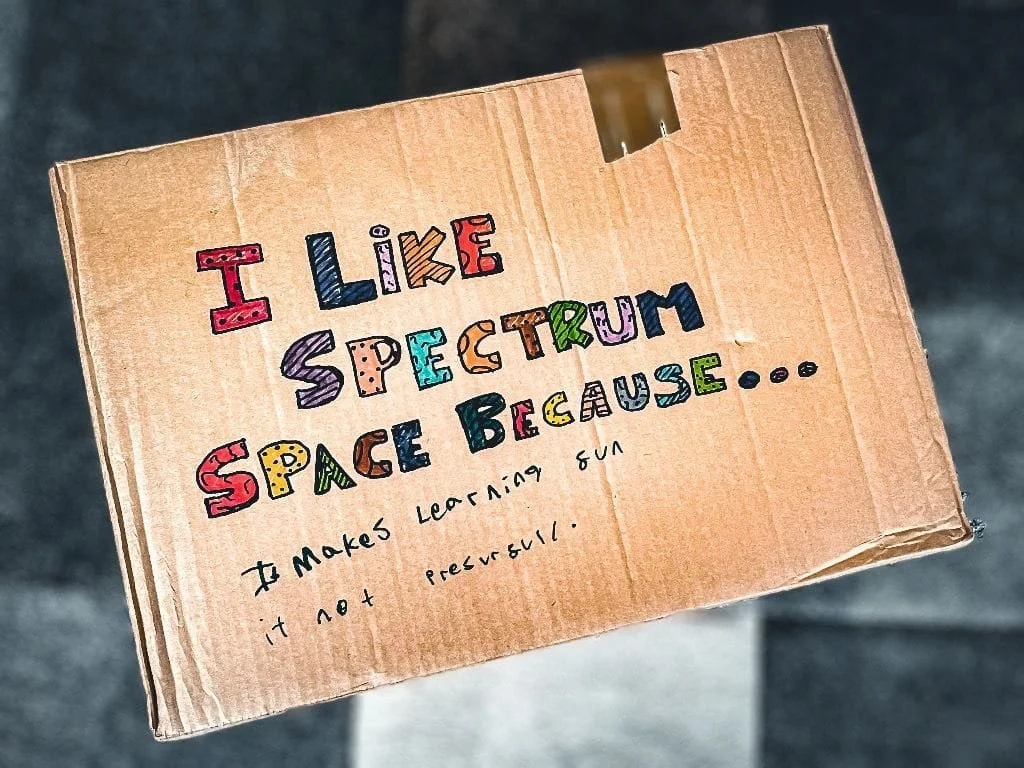 I LiKE
SPECTRUM
SPACE BECAUSE...
It Makes Learning sun
it not presursul.